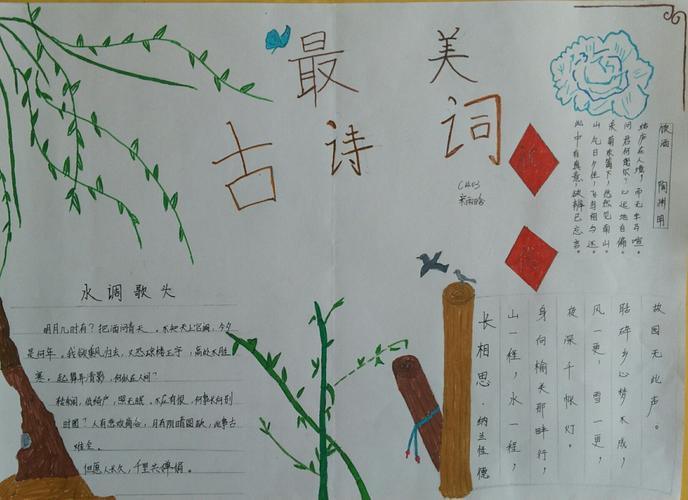 最美
古诗词
饮酒 陶渊明
结庐在人境，而无车马喧。
问君何能尔？心远地自偏。
采菊东篱下，悠然见南山。
山气日夕佳，飞鸟相与还。
此中有真意，欲辨已忘言。
水调歌头
明月几时有？把酒问青天。不知天上宫阙，今夕
是何年。我欲乘风归去，又恐琼楼玉宇，高处不胜
寒。起舞弄清影，何似在人间？
转朱阁，低绮户，照无眠。不应有恨，何事长向别
时圆？人有悲欢离合，月有阴晴圆缺，此事古
难全。
但愿人长久，千里共婵娟。
长相思·纳兰性德
山一程，水一程，
身向榆关那畔行，
夜深千帐灯。
风一更，雪一更，
聒碎乡心梦不成，
故园无此声。